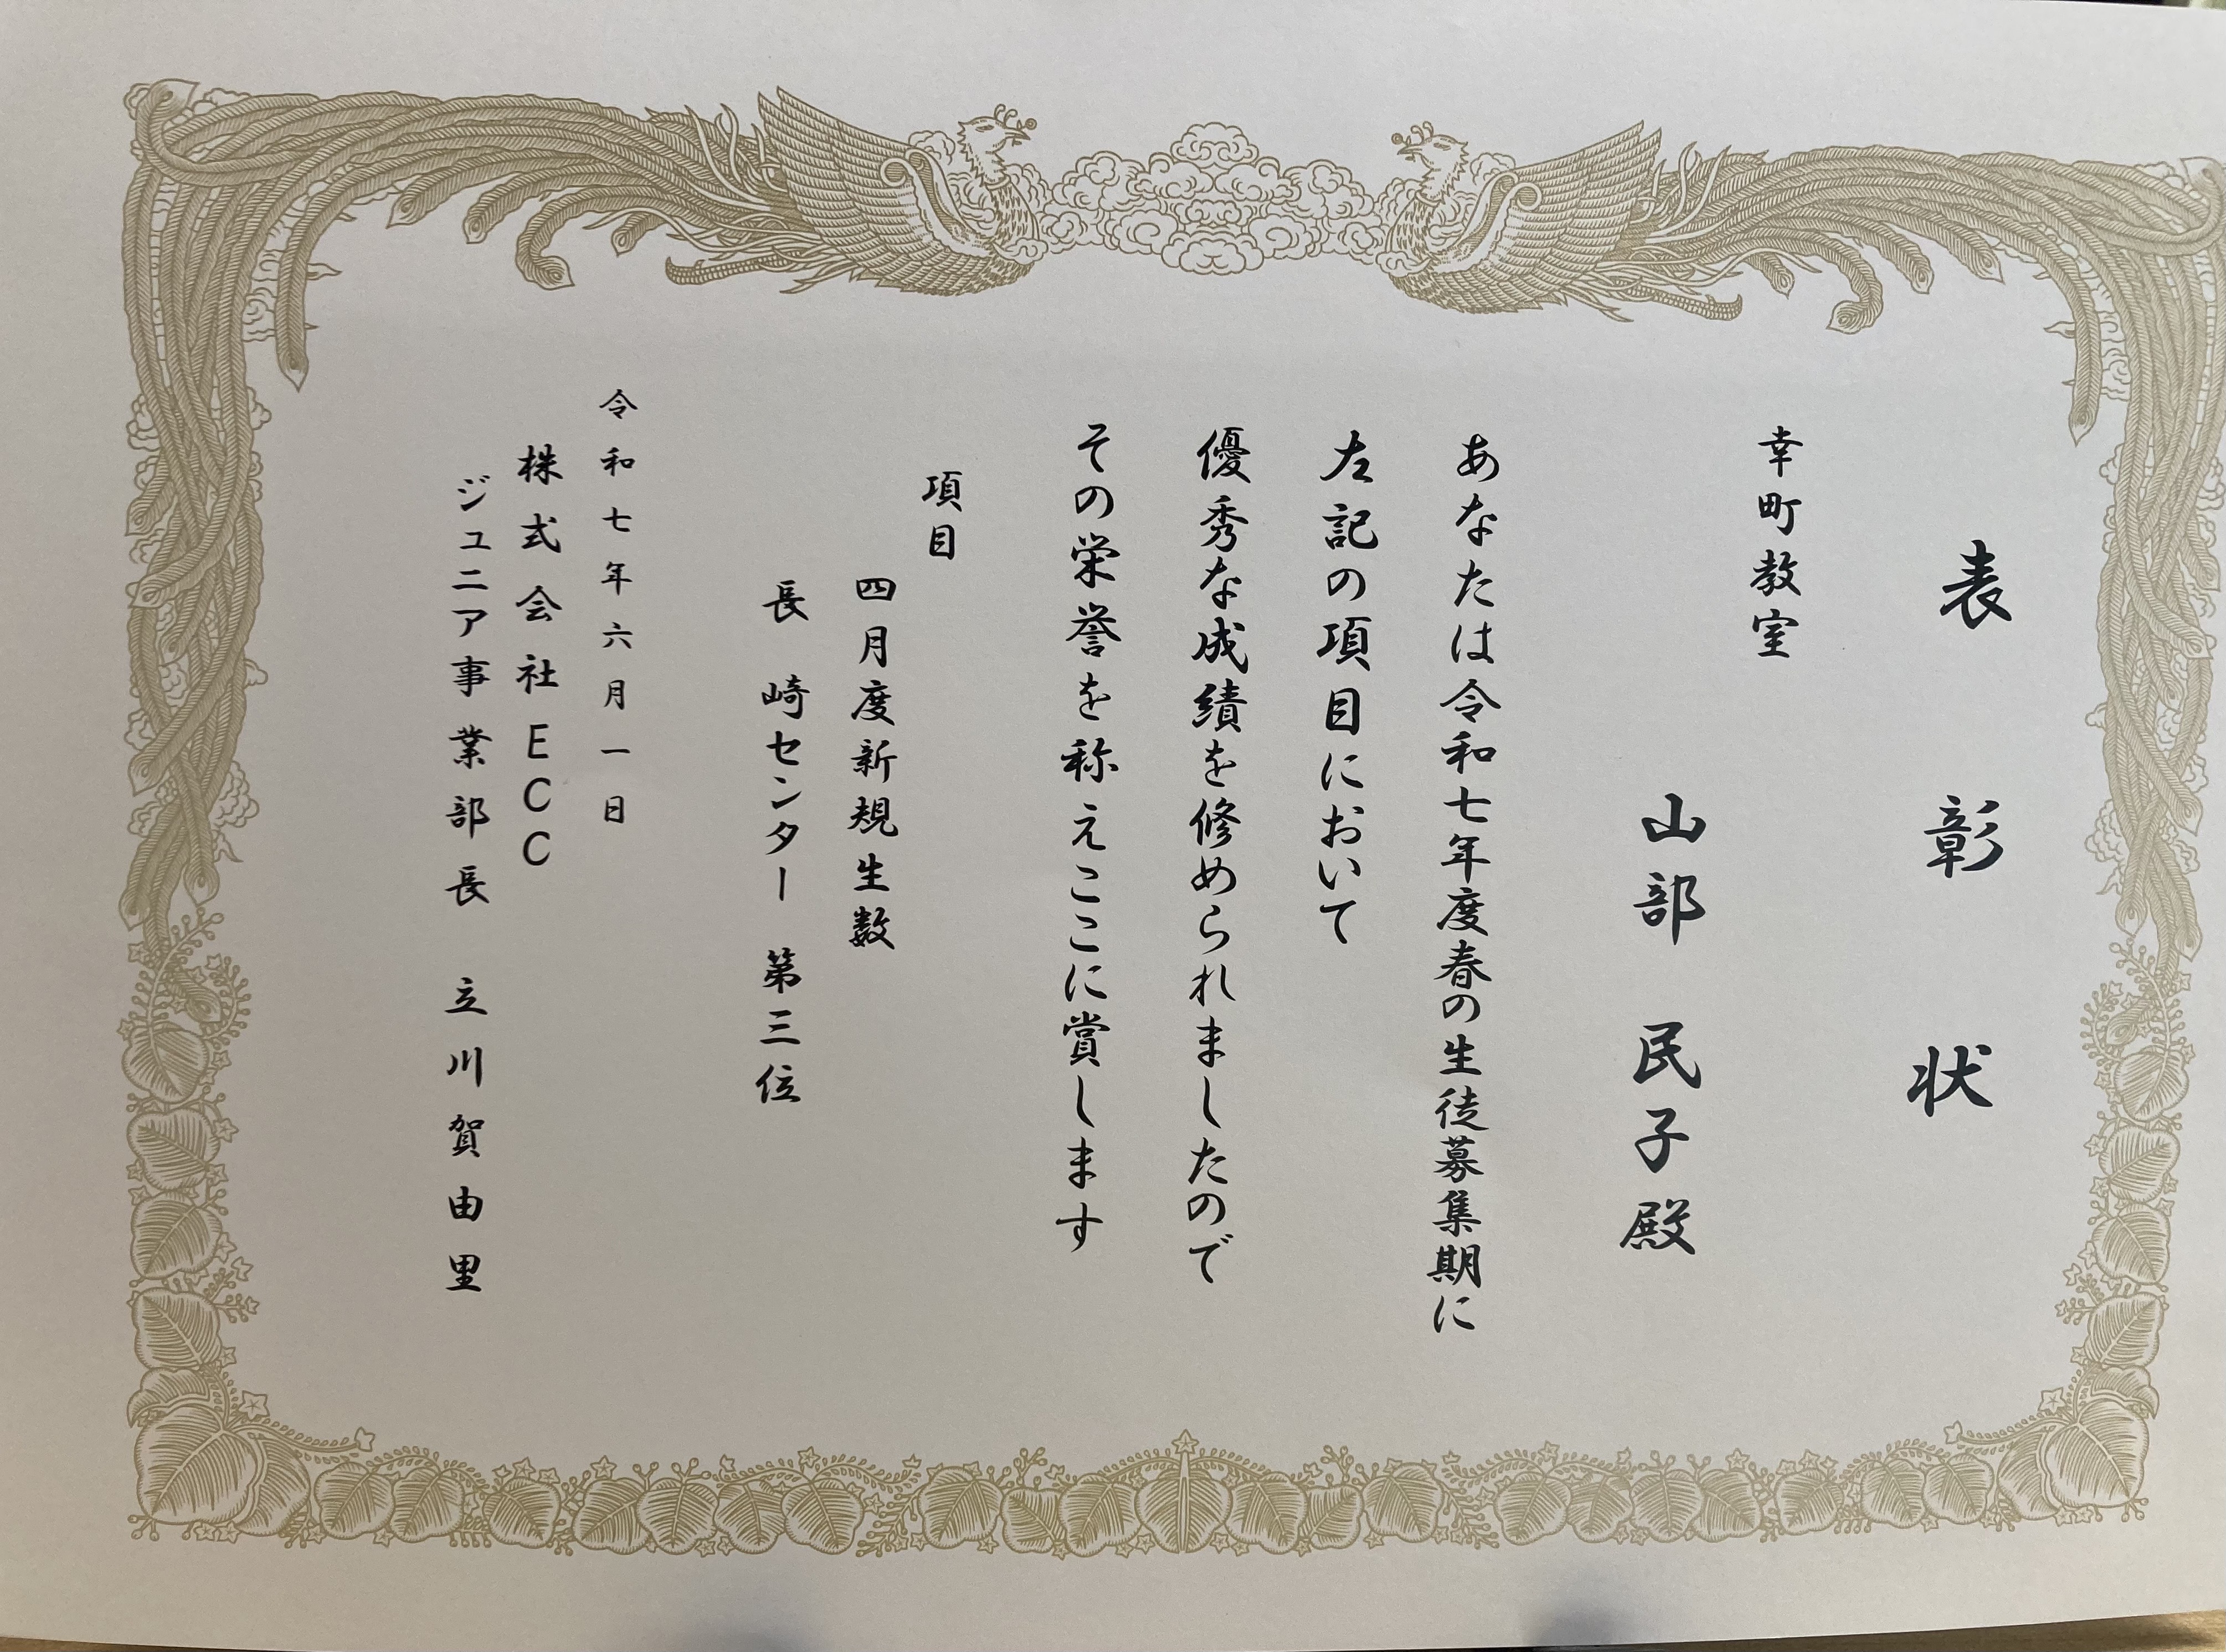 表彰状
幸町教室
山部 民子殿
あなたは令和七年度春の生徒募集期に
左記の項目において
優秀な成績を修められましたので
その栄誉を称えここに賞します
項目
四月度新規生数
長崎センター 第三位
令和七年六月一日
株式会社ECC
ジュニア事業部長 立川賀由里